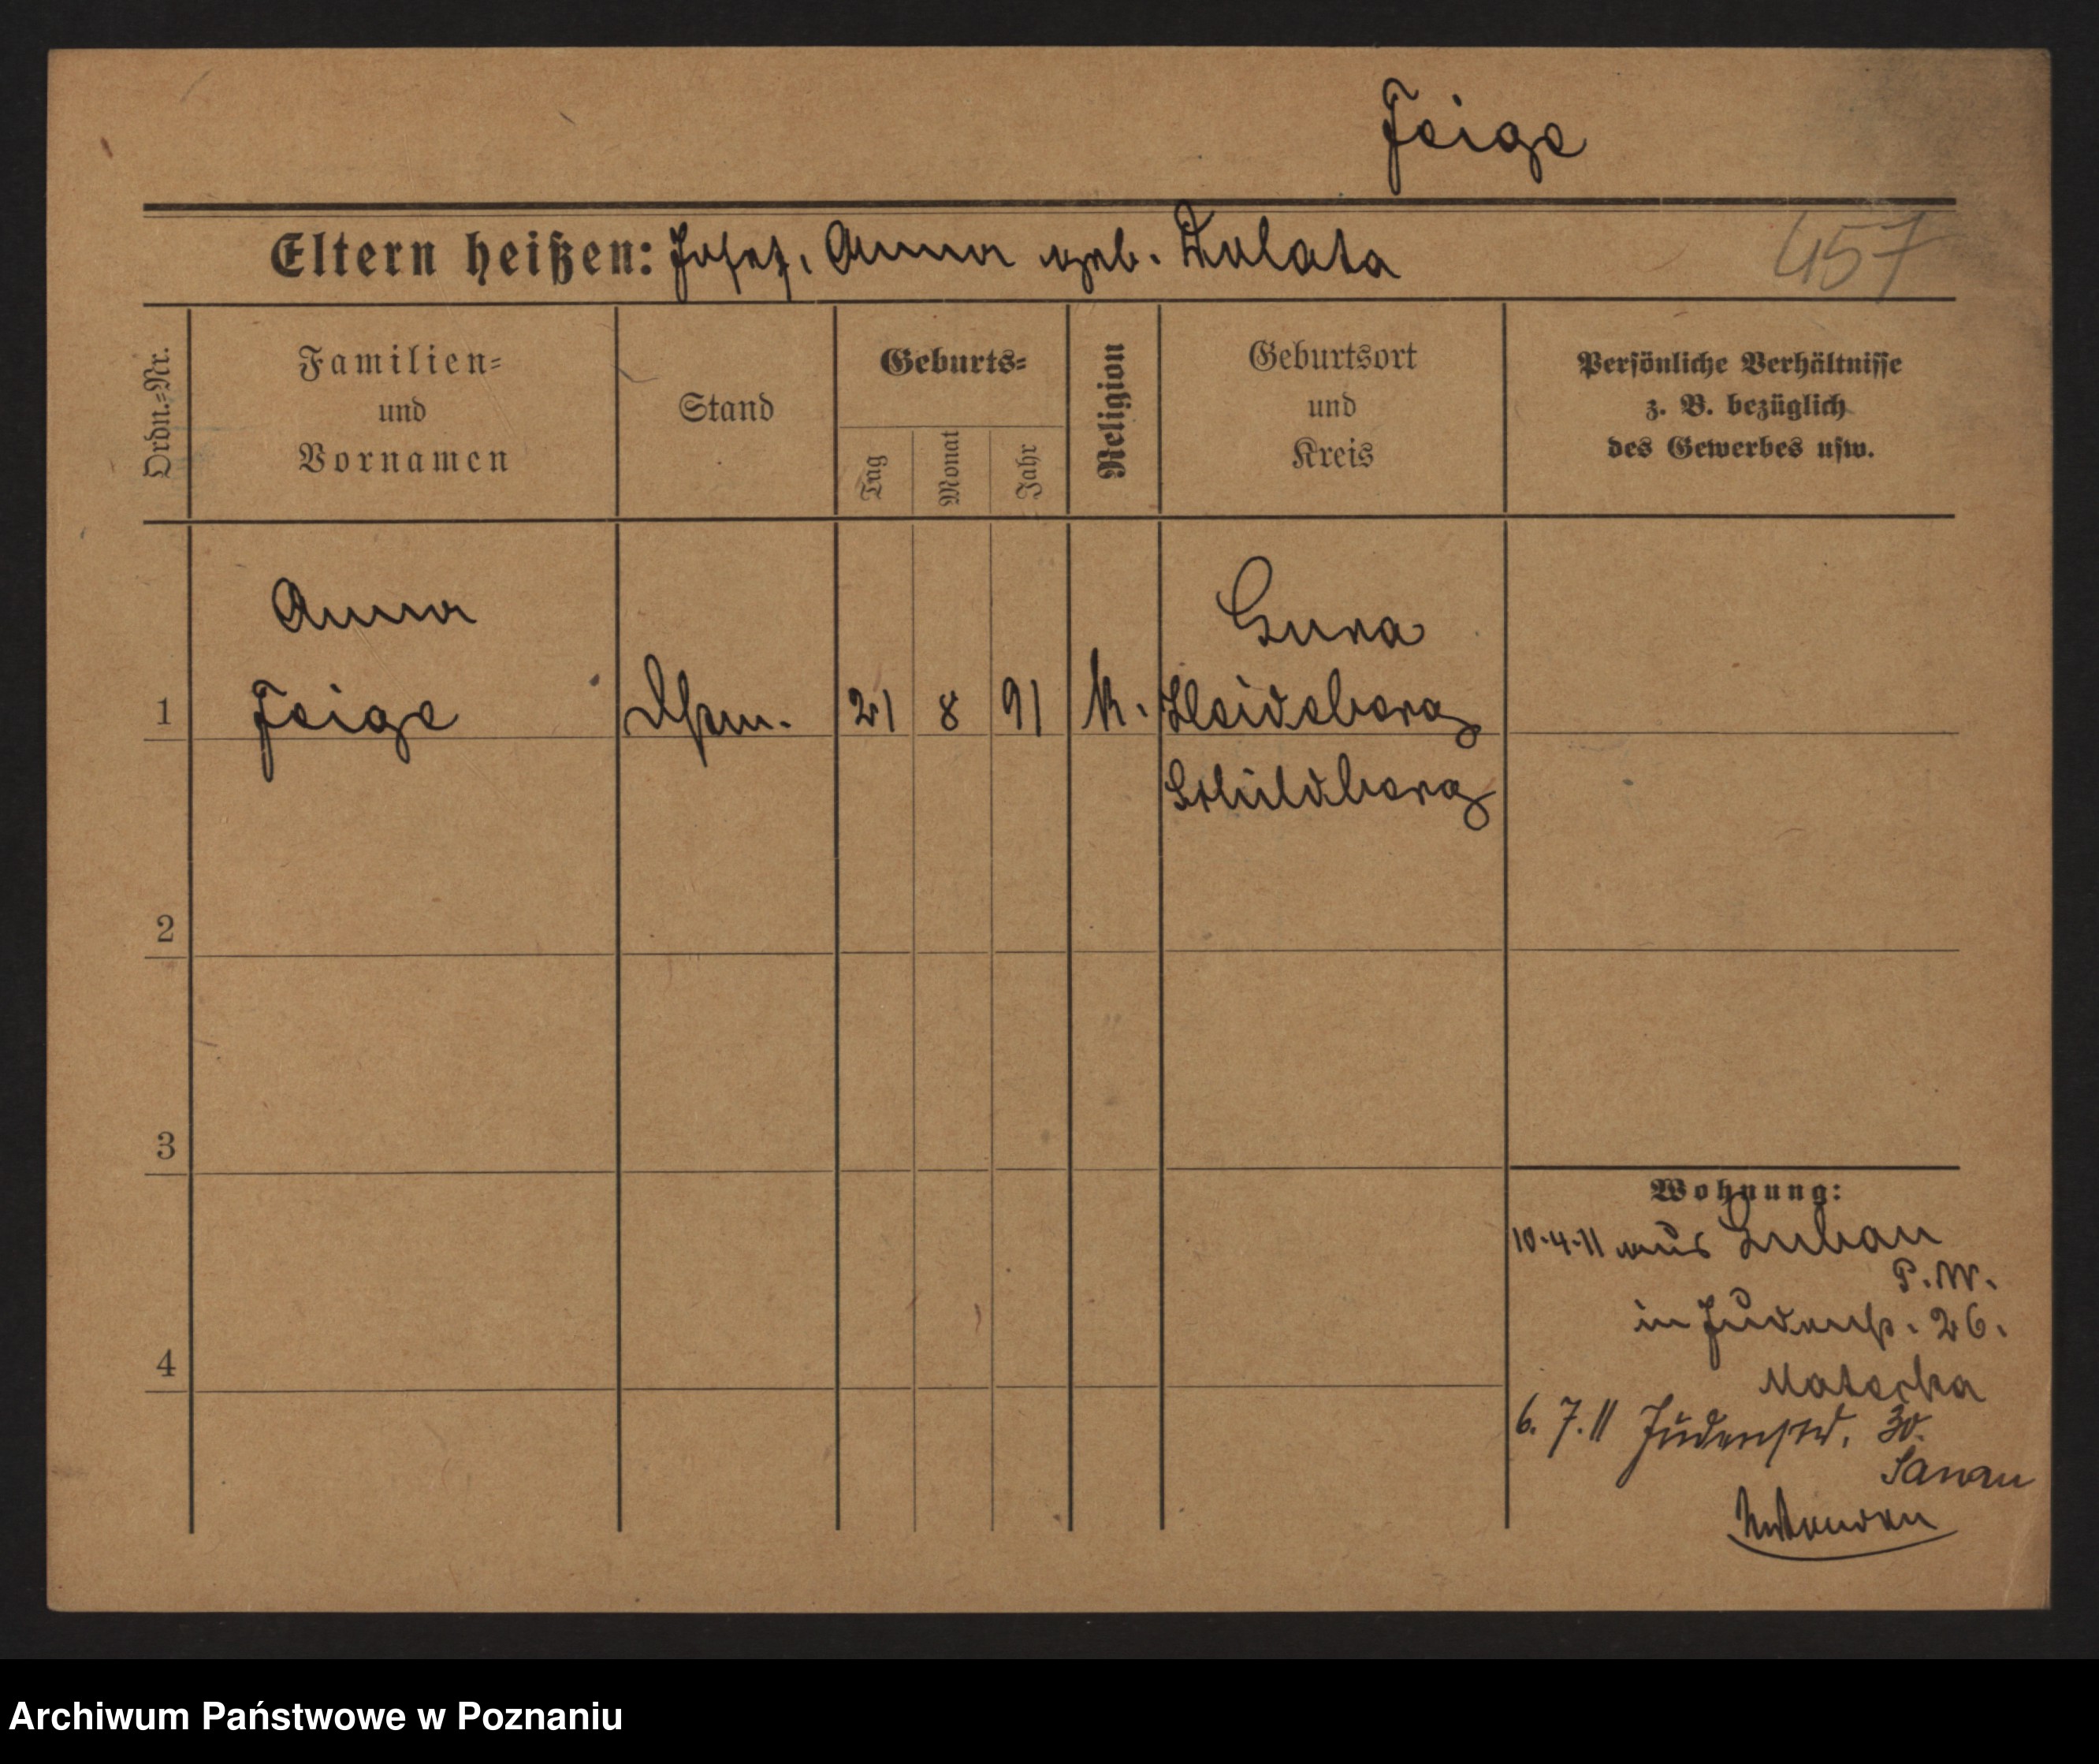 Feige
Eltern heißen: Josef, Anna geb. Kulata
457
Ordn.-Nr.
Familien-
und
Vornamen
Stand
Geburts-
Tag
Monat
Jahr
Religion
Geburtsort
und
Kreis
Persönliche Verhältnisse
z. B. bezüglich
des Gewerbes usw.
Anna
Feige
1
21 8 91 k.
Heideberg
Schildberg
2
3
4
Wohnung:
10.4.11 aus Luban
P. W.
in Judenstr. 26.
Matecka
6. 7. 11 Judenstr. 30.
Archiwum Państwowe w Poznaniu